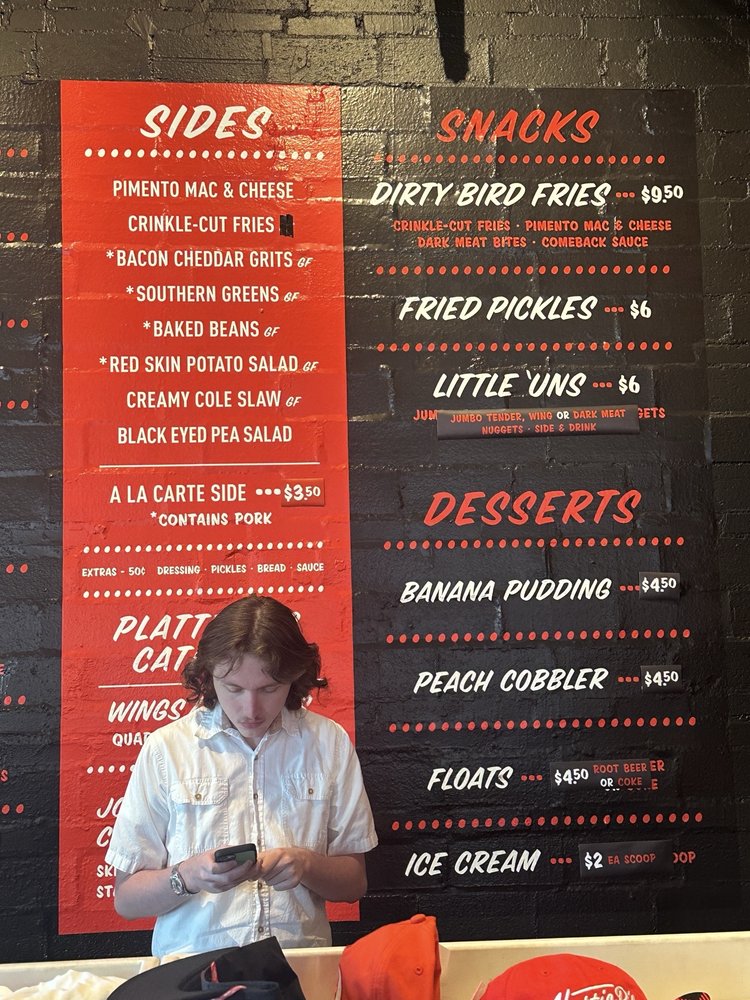 SIDES
PIMENTO MAC & CHEESE
CRINKLE-CUT FRIES
*BACON CHEDDAR GRITS GF
*SOUTHERN GREENS GF
*BAKED BEANS GF
*RED SKIN POTATO SALAD GF
CREAMY COLE SLAW GF
BLACK EYED PEA SALAD
A LA CARTE SIDE $3.50
*CONTAINS PORK
EXTRAS - 50¢ DRESSING · PICKLES · BREAD · SAUCE
WINGS
SNACKS
DIRTY BIRD FRIES $9.50
CRINKLE-CUT FRIES · PIMENTO MAC & CHEESE
DARK MEAT BITES · COMEBACK SAUCE
FRIED PICKLES $6
LITTLE 'UNS $6
JUMBO TENDER, WING OR DARK MEAT
NUGGETS · SIDE & DRINK
DESSERTS
BANANA PUDDING $4.50
PEACH COBBLER $4.50
FLOATS $4.50 ROOT BEER
OR COKE
ICE CREAM $2 EA SCOOP